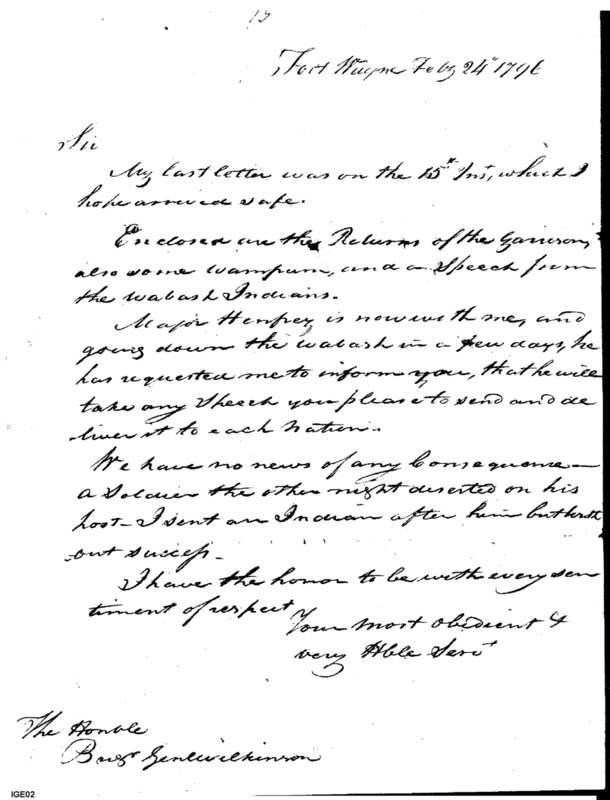 15
Fort Wayne Feby 24th 1796
Sir
My last letter was on the 15th Inst, which I
hope arrived safe.
Enclosed are the Returns of the Garrison,
also some wampum, and a Speech from
the Wabash Indians.
Major Henfrey is now with me, and
going down the wabash in a few days, he
has requested me to inform you, that he will
take any Speech you please to send and de
liver it to each Nation.
We have no news of any Consequence—
a Soldier the other night deserted on his
post—I sent an Indian after him but with
-out success.
I have the honor to be with every sen
timent of respect
Your most obedient &
very Hble Servt
The Honble
Brigr Genl Wilkinson
IGE02